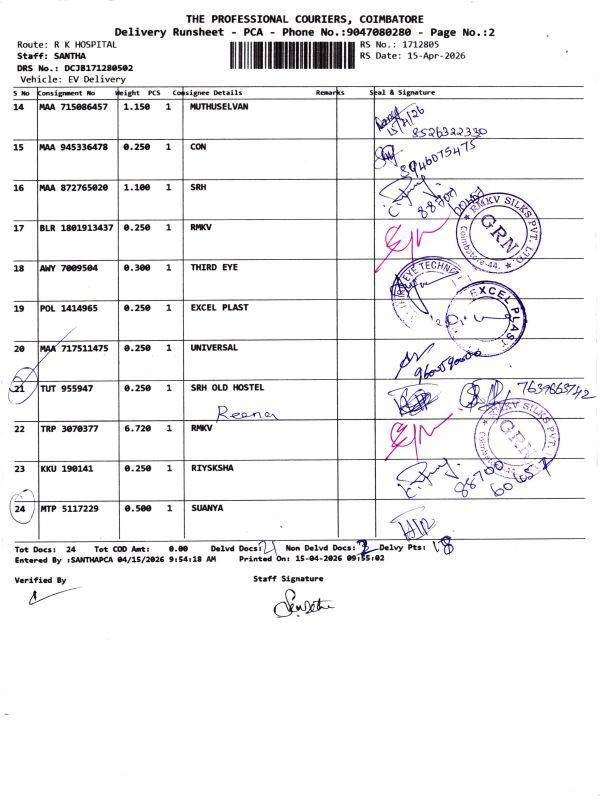 THE PROFESSIONAL COURIERS, COIMBATORE
Delivery Runsheet - PCA - Phone No.:9047080280 - Page No.:2
Route: R K HOSPITAL
RS No.: 1712805
Staff: SANTHA
RS Date: 15-Apr-2026
DRS No.: DCJB171280502
Vehicle: EV Delivery
S No Consignment No Weight PCS Consignee Details Remarks Seal & Signature
14 MAA 715086457 1.150 1 MUTHUSELVAN
8526322330
15 MAA 945336478 0.250 1 CON
8946075475
16 MAA 872765020 1.100 1 SRH
17 BLR 1801913437 0.250 1 RMKV
RMKV SILKS PVT. LTD.
GRN
Coimbatore-44.
18 AWY 7009504 0.300 1 THIRD EYE
THIRD EYE TECHNO
19 POL 1414965 0.250 1 EXCEL PLAST
EXCEL PLAST
20 MAA 717511475 0.250 1 UNIVERSAL
21 TUT 955947 0.250 1 SRH OLD HOSTEL
7639863742
Reena
22 TRP 3070377 6.720 1 RMKV
RMKV SILKS PVT.
GRN
23 KKU 190141 0.250 1 RIYSKSHA
24 MTP 5117229 0.500 1 SUANYA
Tot Docs: 24 Tot COD Amt: 0.00 Delvd Docs: 21 Non Delvd Docs: 3 Delvy Pts: 18
Entered By :SANTHAPCA 04/15/2026 9:54:18 AM Printed On: 15-04-2026 09:55:02
Verified By
Staff Signature